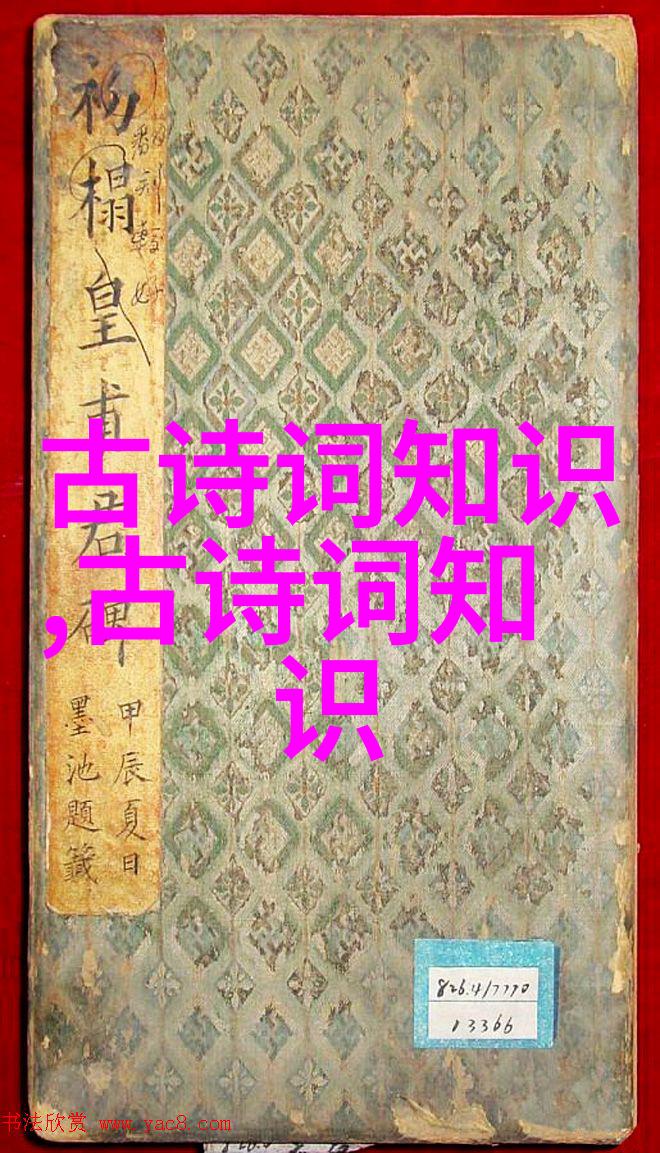 初榻皇甫君碑
甲辰夏日
墨池題籤
古诗词知识
,古诗词知
识
826.4/7770
13366
书法欣赏 www.yac8.com